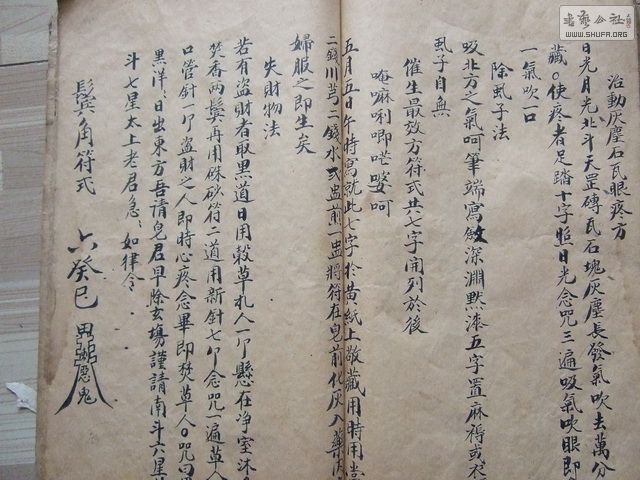 治動灰塵石瓦眼疼方
日光月光北斗天罡磚瓦石塊灰塵長發氣吹去萬分
藏〇使疼者足踏十字照日光念咒三遍吸氣吹眼即
一氣吹一口
除虱子法
吸北方之氣呵筆端寫敘深淵默漆五字置麻褥或衣
虱子自無
催生最效方符式共七字開列於後
唵嘛唎唧𠵽婆呵
五月五日午時寫就此七字於黃紙上敬藏用時用當
二錢川芎二錢水弍盅煎一盅將符在皂前化灰入藥
婦服之即生矣
失財物法
若有盜財者取黑道日用穀草札人一个懸在净室沐
焚香兩鬓再用硃砂符二道用新針七个念咒一遍草人
口管針一个盜財之人即時心疼念畢即焚草人〇咒曰
黑洋、日出東方吾請皃君早除玄塲謹請南斗六星
斗七星太上老君急、如律令
鬓角符式
癸巳
鬼
書藝公社
WWW.SHUFA.ORG